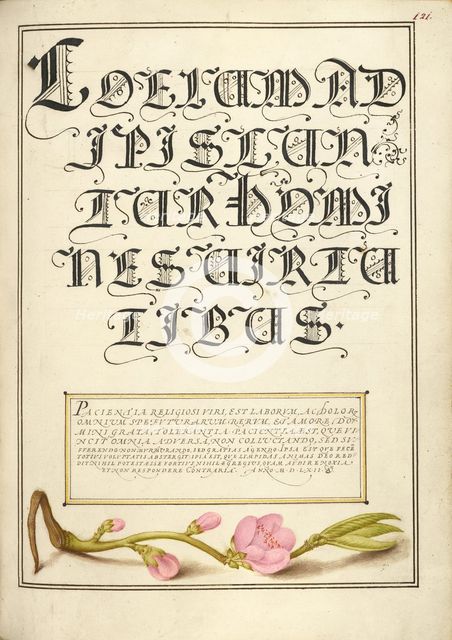 121.
COELUM AD
IPISCUN
TUR HOMI
NES UIRTU
TIBUS.
PACIENTIA RELIGIOSI VIRI, EST LABORVM, AC DOLOR-
OMNIVM SPE FVTVRARVM RERVM, ET AMORE, DO-
MINI GRATA, TOLERANTIA. PACIENTIA EST, QUE VI-
NCIT OMNIA ADVERSA, NON COLLUCTANDO, SED SV-
FFERENDO NON MVRMVRANDO, SED GRATIAS AGENDO. IPSA EST QVE FECE
TOTIVS VOLVPTATIS ABSTERGIT: IPSA EST, QVE LIMPIDAS ANIMAS DEO RED-
DIT. NIHIL POTEST ESSE FORTIVS NIHIL EGREGIVS, QVAM AVDIRE NOXIA,
ET NON RESPONDERE CONTRARIA. ANNO M.D.LXII.
Heritage Heritage